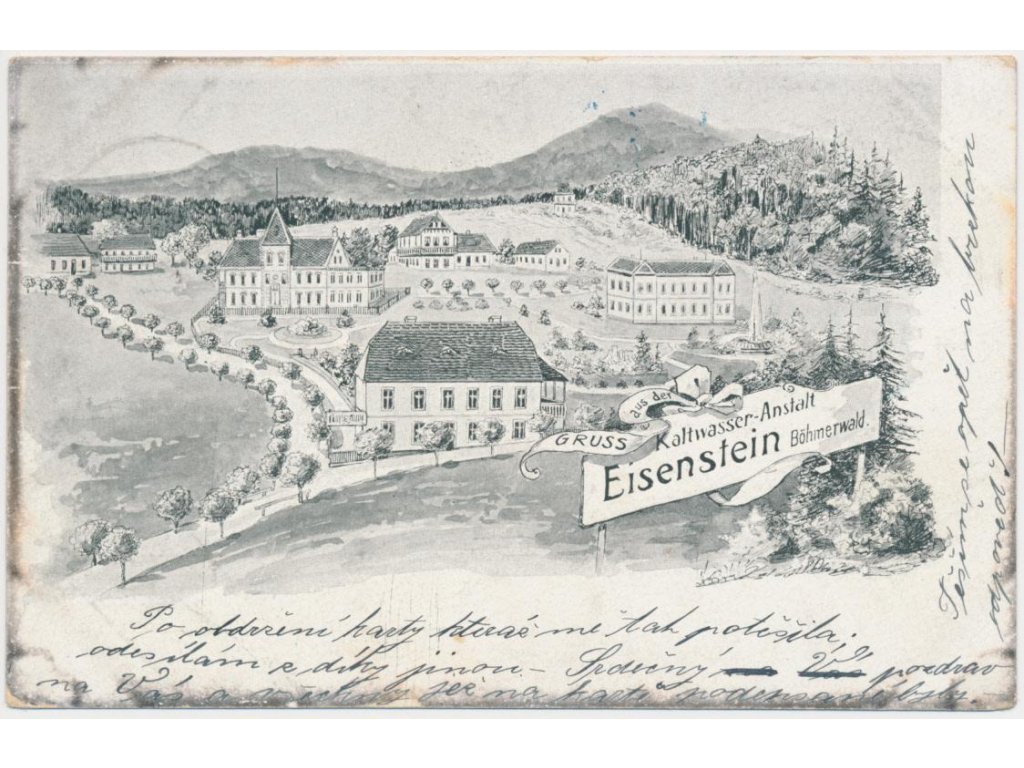 GRUSS aus der
Kaltwasser-Anstalt
Eisenstein Böhmerwald.
Po obdržení karty kteráž mě tak potěšila,
odesílám z díky jinou – Srdečný pozdrav
na Vás a všechny jež na kartě podepsané byly.
Těším se opět na brzkou
odpověď!